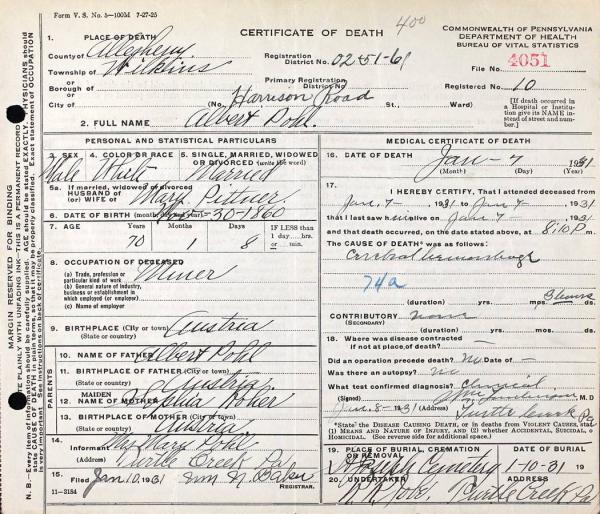 Form V. S. No. 5—100M 7-27-25
CERTIFICATE OF DEATH
400
COMMONWEALTH OF PENNSYLVANIA
DEPARTMENT OF HEALTH
BUREAU OF VITAL STATISTICS
1. PLACE OF DEATH
County of Allegheny
Township of Wilkins
or
Borough of
or
City of
Registration District No. 02 51-61
Primary Registration District No.
File No. 4051
Registered No. 10
(No. Harrison Road St., Ward)
[If death occurred in a Hospital or Institution give its NAME instead of street and number.]
2. FULL NAME Albert Pohl.
PERSONAL AND STATISTICAL PARTICULARS
3. SEX Male
4. COLOR OR RACE White
5. SINGLE, MARRIED, WIDOWED OR DIVORCED (write the word) Married
5a. If married, widowed or divorced
HUSBAND of
(or) WIFE of Mary Pittner
6. DATE OF BIRTH (month, day and year) -30-1860
7. AGE Years 70 Months 1 Days 8 IF LESS than 1 day, ... hrs. or ... min.
8. OCCUPATION OF DECEASED Miner
(a) Trade, profession or particular kind of work
(b) General nature of industry, business or establishment in which employed (or employer)
(c) Name of employer
9. BIRTHPLACE (City or town) Austria
(State or country)
PARENTS
10. NAME OF FATHER Albert Pohl
11. BIRTHPLACE OF FATHER (City or town) Austria
(State or country)
12. MAIDEN NAME OF MOTHER
13. BIRTHPLACE OF MOTHER (City or town) Austria
(State or country)
14. Informant Mrs Mary Pohl
(Address) Turtle Creek Pa.
15. Filed Jan 10, 1931 Wm N. Baker
REGISTRAR.
11-2184
MEDICAL CERTIFICATE OF DEATH
16. DATE OF DEATH Jan - 7 1931
(Month) (Day) (Year)
17. I HEREBY CERTIFY, That I attended deceased
from Jan- 7 - 1931 to Jan- 7 - 1931
that I last saw him alive on Jan- 7 - 1931
and that death occurred, on the date stated above, at 8:10 P m.
The CAUSE OF DEATH* was as follows:
Cerebral hemorrhage
74a
(duration) yrs. mos. 3 hours
CONTRIBUTORY none
(SECONDARY)
(duration) yrs. mos. ds.
18. Where was disease contracted
if not at place of death? —
Did an operation precede death? No Date of —
Was there an autopsy? No
What test confirmed diagnosis? Clinical
(Signed) M. D
Jan. 8-1931 (Address) Turtle Creek Pa
*State the DISEASE CAUSING DEATH, or in deaths from VIOLENT CAUSES, state (1) MEANS AND NATURE OF INJURY, and (2) whether ACCIDENTAL, SUICIDAL, or HOMICIDAL. (See reverse side for additional space.)
19. PLACE OF BURIAL, CREMATION OR REMOVAL
Cemetery
DATE OF BURIAL
1-10-31 19
20. UNDERTAKER
ADDRESS
Turtle Creek Pa
MARGIN RESERVED FOR BINDING